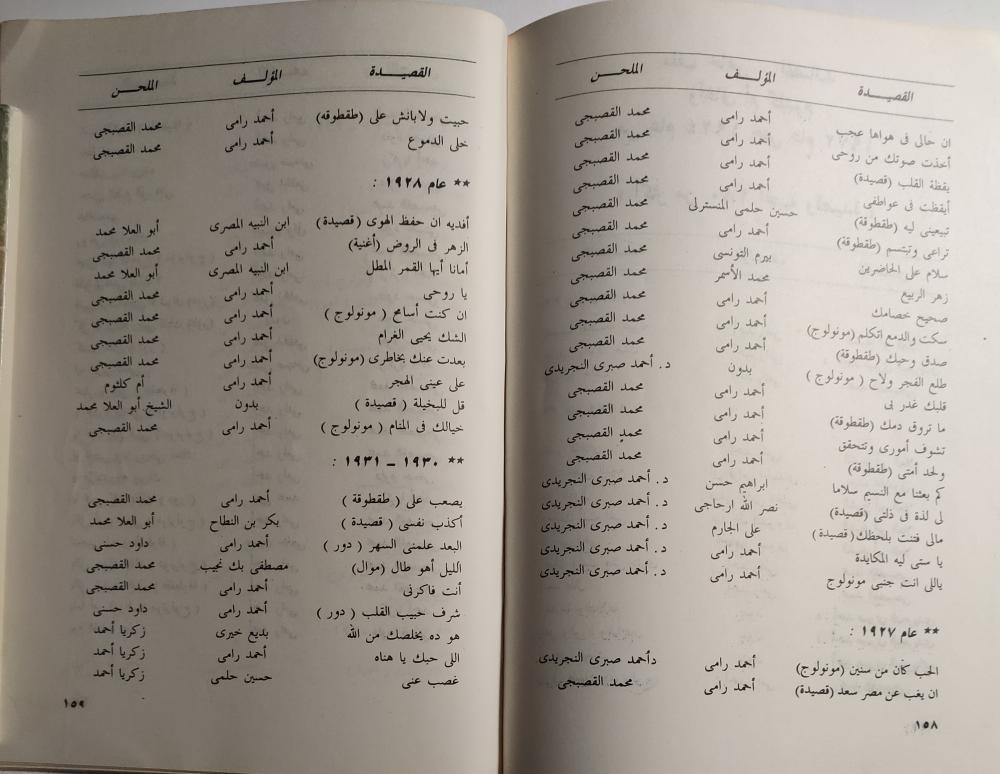 القصيدة المؤلف الملحن
ان حالى فى هواها عجب أحمد رامى محمد القصبجى
أخذت صوتك من روحى أحمد رامى محمد القصبجى
يقظة القلب (قصيدة) أحمد رامى محمد القصبجى
أيقظت فى عواطفى أحمد رامى محمد القصبجى
تبيعينى ليه (طقطوقة) حسين حلمى المنسترلى محمد القصبجى
تراعى وتبتسم (طقطوقة) أحمد رامى محمد القصبجى
سلام على الحاضرين بيرم التونسى محمد القصبجى
زهر الربيع محمد الأسمر محمد القصبجى
صحيح خصامك أحمد رامى محمد القصبجى
سكت والدمع اتكلم (مونولوج) أحمد رامى محمد القصبجى
صدق وحبك (طقطوقة) أحمد رامى محمد القصبجى
طلع الفجر ولاح ( مونولوج ) بدون د. أحمد صبرى النجريدى
قلبك غدر بى أحمد رامى محمد القصبجى
ما تروق دمك (طقطوقة) أحمد رامى محمد القصبجى
تشوف أمورى وتتحقق أحمد رامى محمد القصبجى
ولحد أمتى (طقطوقة) أحمد رامى محمد القصبجى
كم بعثنا مع النسيم سلاما ابراهيم حسن د. أحمد صبرى النجريدى
لى لذة فى ذلتى (قصيدة) نصر الله ارحاجى د. أحمد صبرى النجريدى
مالى فتنت بلحظك ( قصيدة) على الجارم د. أحمد صبرى النجريدى
يا ستى ليه المكايدة أحمد رامى د. أحمد صبرى النجريدى
ياللى انت جنبى مونولوج أحمد رامى د. أحمد صبرى النجريدى
** عام ١٩٢٧ :
الحب كان من سنين (مونولوج) أحمد رامى دأحمد صبرى النجريدى
ان يغب عن مصر سعد (قصيدة) أحمد رامى محمد القصبجى
١٥٨
القصيدة المؤلف الملحن
حبيت ولابانش على (طقطوقه) أحمد رامى محمد القصبجى
خلى الدموع أحمد رامى محمد القصبجى
** عام ١٩٢٨ :
أفديه ان حفظ الهوى (قصيدة) ابن النبيه المصرى أبو العلا محمد
الزهر فى الروض (أغنية) أحمد رامى محمد القصبجى
أمانا أيها القمر المطل ابن النبيه المصرى أبو العلا محمد
يا روحى أحمد رامى محمد القصبجى
ان كنت أسامح ( مونولوج ) أحمد رامى محمد القصبجى
الشك يحيى الغرام أحمد رامى محمد القصبجى
بعدت عنك بخاطرى (مونولوج) أحمد رامى محمد القصبجى
على عينى الهجر أحمد رامى أم كلثوم
قل للبخيلة ( قصيدة ) بدون الشيخ أبو العلا محمد
خيالك فى المنام ( مونولوج ) أحمد رامى محمد القصبجى
** ١٩٣٠ - ١٩٣١ :
يصعب على ( طقطوقة ) أحمد رامى محمد القصبجى
أكذب نفسى ( قصيدة ) بكر بن النطاح أبو العلا محمد
البعد علمنى السهر ( دور ) أحمد رامى داود حسنى
الليل أهو طال (موال) مصطفى بك نجيب محمد القصبجى
أنت فاكرنى أحمد رامى محمد القصبجى
شرف حبيب القلب ( دور ) أحمد رامى داود حسنى
هو ده يخلصك من الله بديع خيرى زكريا أحمد
اللى حبك يا هناه أحمد رامى زكريا أحمد
غصب عنى حسين حلمى زكريا أحمد
١٥٩